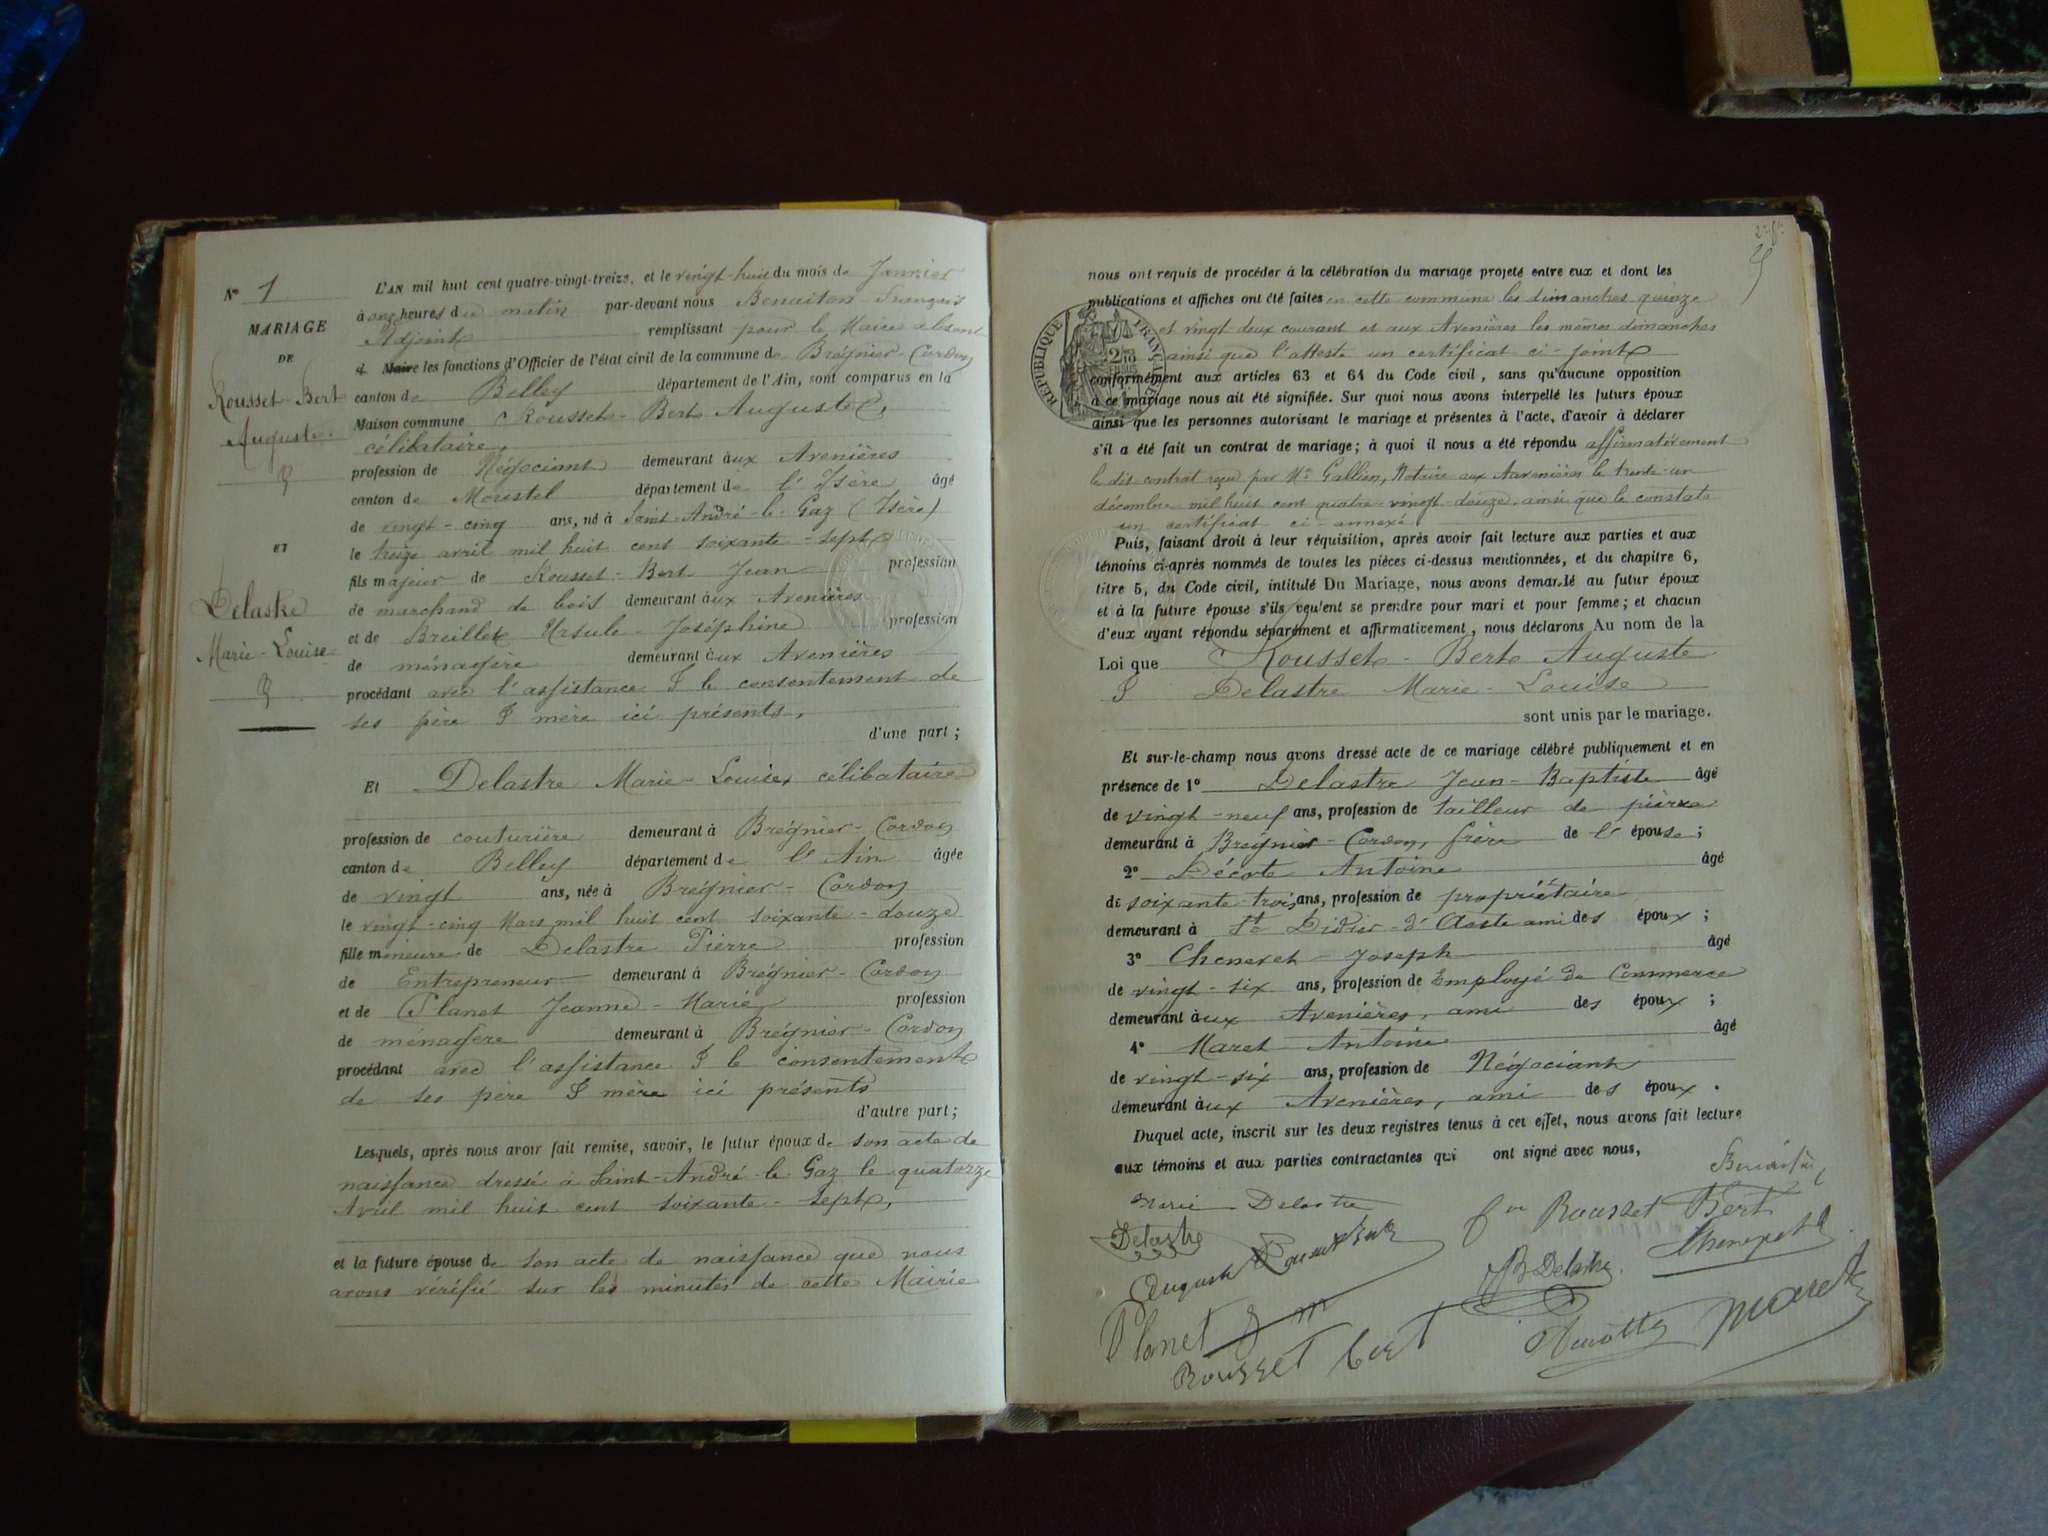 N° 1
MARIAGE
DE
Rousset-Bert
Auguste
&
ET
Delastre
Marie-Louise
&
L'AN mil huit cent quatre-vingt-treize, et le vingt-huit du mois de Janvier
à onze heures du matin par-devant nous Benaiton François
Adjoint remplissant pour le Maire absent
Maire les fonctions d'Officier de l'état civil de la commune de Brégnier-Cordon
canton de Belley département de l'Ain, sont comparus en la
Maison commune Rousset-Bert Auguste,
célibataire,
profession de Négociant demeurant aux Avenières
canton de Morestel département de l'Isère âgé
de vingt-cinq ans, né à Saint-André-le-Gaz (Isère)
le treize avril mil huit cent soixante-sept
fils majeur de Rousset-Bert Jean profession
de marchand de bois demeurant aux Avenières
et de Breillet Ursule-Joséphine profession
de ménagère demeurant aux Avenières
procédant avec l'assistance & le consentement de
ses père & mère ici présents,
d'une part;
Et Delastre Marie-Louise, célibataire
profession de couturière demeurant à Brégnier-Cordon
canton de Belley département de l'Ain âgée
de vingt ans, née à Brégnier-Cordon
le vingt-cinq Mars mil huit cent soixante-douze
fille mineure de Delastre Pierre profession
de Entrepreneur demeurant à Brégnier-Cordon
et de Planet Jeanne-Marie profession
de ménagère demeurant à Brégnier-Cordon
procédant avec l'assistance & le consentement
de ses père & mère ici présents
d'autre part;
Lesquels, après nous avoir fait remise, savoir, le futur époux de son acte de
naissance dressé à Saint-André-le-Gaz le quatorze
Avril mil huit cent soixante-sept,
et la future épouse de son acte de naissance que nous
avons vérifié sur les minutes de cette Mairie
nous ont requis de procéder à la célébration du mariage projeté entre eux et dont les
publications et affiches ont été faites en cette commune les dimanches quinze
et vingt-deux courant et aux Avenières les mêmes dimanches
ainsi que l'atteste un certificat ci-joint
RÉPUBLIQUE FRANÇAISE
conformément aux articles 63 et 64 du Code civil, sans qu'aucune opposition
à ce mariage nous ait été signifiée. Sur quoi nous avons interpellé les futurs époux
ainsi que les personnes autorisant le mariage et présentes à l'acte, d'avoir à déclarer
s'il a été fait un contrat de mariage; à quoi il nous a été répondu affirmativement
le dit contrat reçu par Me Gallien, Notaire aux Avenières le trente-un
décembre mil huit cent quatre-vingt-douze, ainsi que le constate
un certificat ci-annexé
Puis, faisant droit à leur réquisition, après avoir fait lecture aux parties et aux
témoins ci-après nommés de toutes les pièces ci-dessus mentionnées, et du chapitre 6,
titre 5, du Code civil, intitulé Du Mariage, nous avons demandé au futur époux
et à la future épouse s'ils veulent se prendre pour mari et pour femme; et chacun
d'eux ayant répondu séparément et affirmativement, nous déclarons Au nom de la
Loi que Rousset-Bert Auguste
& Delastre Marie-Louise
sont unis par le mariage.
Et sur-le-champ nous avons dressé acte de ce mariage célébré publiquement et en
présence de 1° Delastre Jean-Baptiste âgé
de vingt-neuf ans, profession de tailleur de pierre
demeurant à Brégnier-Cordon, frère de l'épouse;
2° Décote Antoine âgé
de soixante-trois ans, profession de propriétaire
demeurant à St Didier-d'Aoste ami des époux;
3° Chenevet Joseph âgé
de vingt-six ans, profession de Employé de Commerce
demeurant aux Avenières, ami des époux;
4° Maret Antoine âgé
de vingt-six ans, profession de Négociant
demeurant aux Avenières, ami des époux.
Duquel acte, inscrit sur les deux registres tenus à cet effet, nous avons fait lecture
aux témoins et aux parties contractantes qui ont signé avec nous,
Marie Delastre
Rousset Bert
Delastre
Auguste Rousset Bert
JB Delastre
Chenevet
Planet J m
Maret
Rousset bert